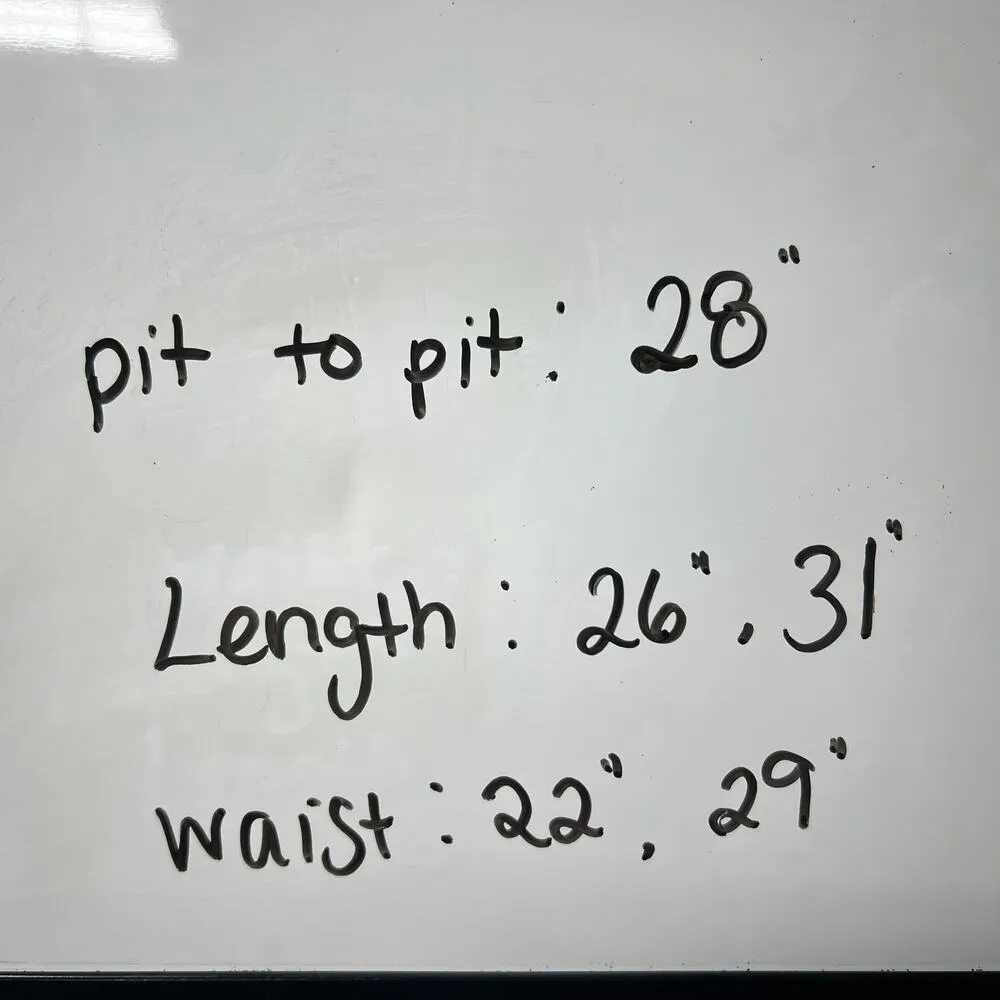 pit to pit: 28"
Length: 26", 31"
waist: 22", 29"